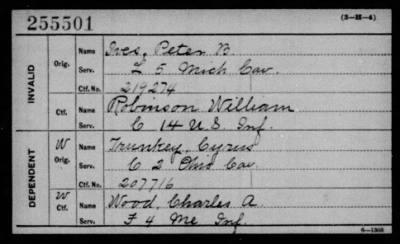 255501 (3-H-4)
INVALID
Orig. Name Ives, Peter B
Serv. L 5 Mich Cav.
Ctf. No. 219274
Ctf. Name Robinson William
Serv. C 14 U.S. Inf.
DEPENDENT
W Orig. Name Trunkey, Cyrus
Serv. C 2 Ohio Cav.
Ctf. No. 207716
W Ctf. Name Wood, Charles A.
Serv. F 4 Me Inf.